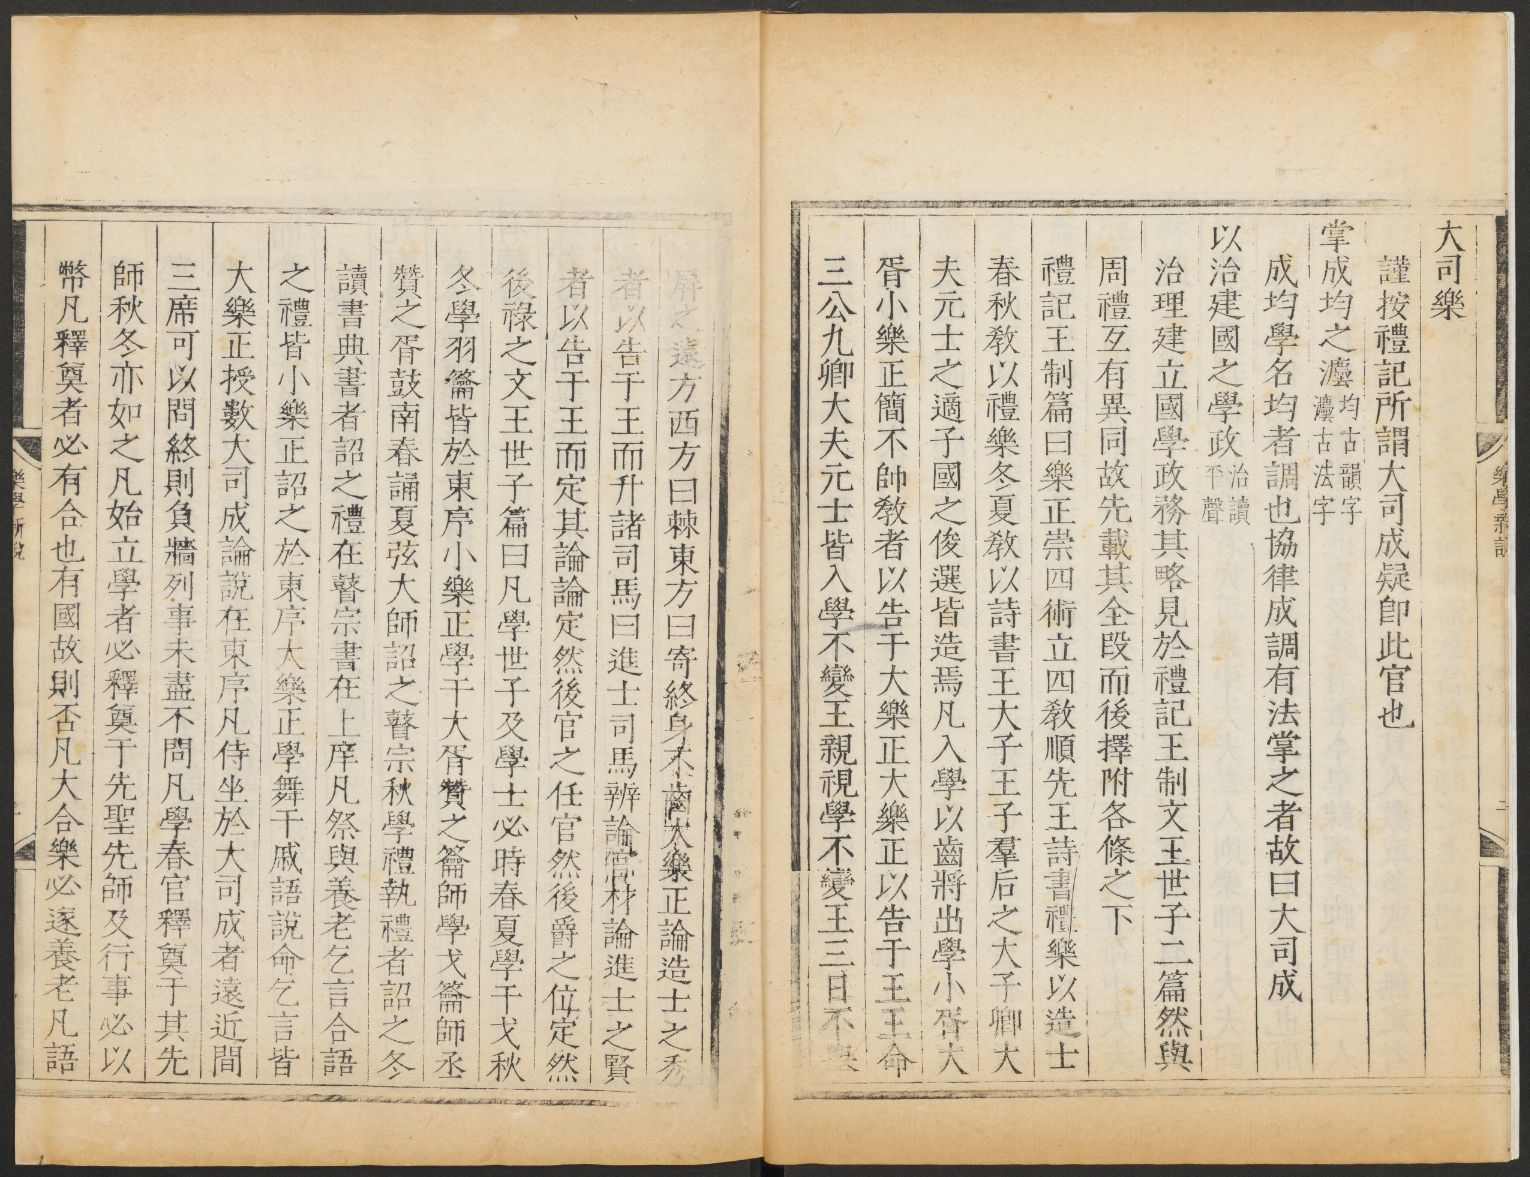 大司樂
謹按禮記所謂大司成疑卽此官也
掌成均之灋均古韻字灋古法字
成均學名均者調也協律成調有法掌之者故曰大司成
以治建國之學政治讀平聲
治理建立國學政務其略見於禮記王制文王世子二篇然與
周禮互有異同故先載其全段而後擇附各條之下
禮記王制篇曰樂正崇四術立四敎順先王詩書禮樂以造士
春秋敎以禮樂冬夏敎以詩書王大子王子羣后之大子卿大
夫元士之適子國之俊選皆造焉凡入學以齒將出學小胥大
胥小樂正簡不帥敎者以告于大樂正大樂正以告于王王命
三公九卿大夫元士皆入學不變王親視學不變王三日不舉
屏之遠方西方曰棘東方曰寄終身不齒大樂正論造士之秀
者以告于王而升諸司馬曰進士司馬辨論官材論進士之賢
者以告于王而定其論論定然後官之任官然後爵之位定然
後祿之文王世子篇曰凡學世子及學士必時春夏學干戈秋
冬學羽籥皆於東序小樂正學干大胥贊之籥師學戈籥師丞
贊之胥鼓南春誦夏弦大師詔之瞽宗秋學禮執禮者詔之冬
讀書典書者詔之禮在瞽宗書在上庠凡祭與養老乞言合語
之禮皆小樂正詔之於東序大樂正學舞干戚語說命乞言皆
大樂正授數大司成論說在東序凡侍坐於大司成者遠近間
三席可以問終則負牆列事未盡不問凡學春官釋奠于其先
師秋冬亦如之凡始立學者必釋奠于先聖先師及行事必以
幣凡釋奠者必有合也有國故則否凡大合樂必遂養老凡語
樂學新說
二
樂學新說